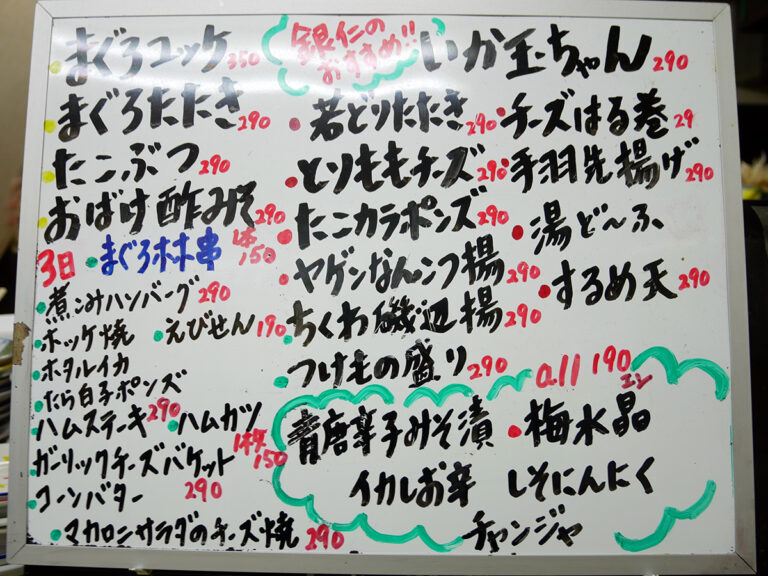 まぐろユッケ 350
まぐろたたき 290
たこぶつ 290
おばけ酢みそ 290
3日 まぐろ串 1本150
煮こみハンバーグ 290
ホッケ焼 えびせん 190
ホタルイカ
たら白子ポンズ
ハムステーキ 290 ハムカツ 1枚150
ガーリックチーズバケット
コーンバター 290
マカロニサラダのチーズ焼 290
銀仁のおすすめ!!
いか玉ちゃん 290
若どりたたき 290 チーズはる巻 29
とりももチーズ 290 手羽先揚げ 290
たこカラポンズ 290 湯ど〜ふ
ヤゲンなんこつ揚 290 するめ天 290
ちくわ磯辺揚 290
つけもの盛り 290
all 190エン
青唐辛子みそ漬 梅水晶
イカしお辛 しそにんにく
チャンジャ